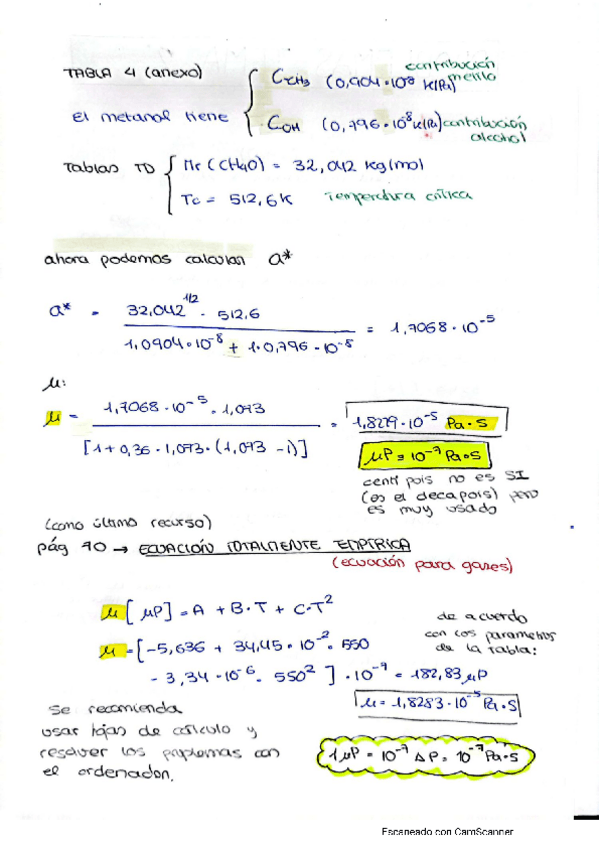 TABLA 4 (anexo)
El metanol tiene
C-CH3 (0,904·10⁸ K/Pa) contribución metilo
COH (0,796·10⁸ K/Pa) contribución alcohol
Tablas TD
Mr (CH4O) = 32,042 kg/mol
Tc = 512,6 K Temperatura crítica
ahora podemos calcular a*
a* = 32,042^1/2 · 512,6 / 1,0904·10^-8 + 1·0,796·10^-8 = 1,7068·10^-5
μ:
μ = 1,7068·10^-5 · 1,073 / [1+0,36·1,073·(1,073 -1)] = 1,8279·10^-5 Pa·s
μP = 10^-7 Pa·s
centipois no es SI
(es el decapois) pero
es muy usado
(como último recurso)
pág 70 → ECUACIÓN TOTALMENTE EMPÍRICA
(ecuación para gases)
μ [μP] = A + B·T + C·T²
μ = [-5,636 + 34,45·10^-2 · 550
- 3,34·10^-6 · 550² ] · 10^-7 = 182,83 μP
μ = 1,8283·10^-5 Pa·s
de acuerdo
con los parametros
de la tabla:
Se recomienda
usar hojas de cálculo y
resolver los problemas con
el ordenador.
1 μP = 10^-7 ΔP = 10^-7 Pa·s
Escaneado con CamScanner